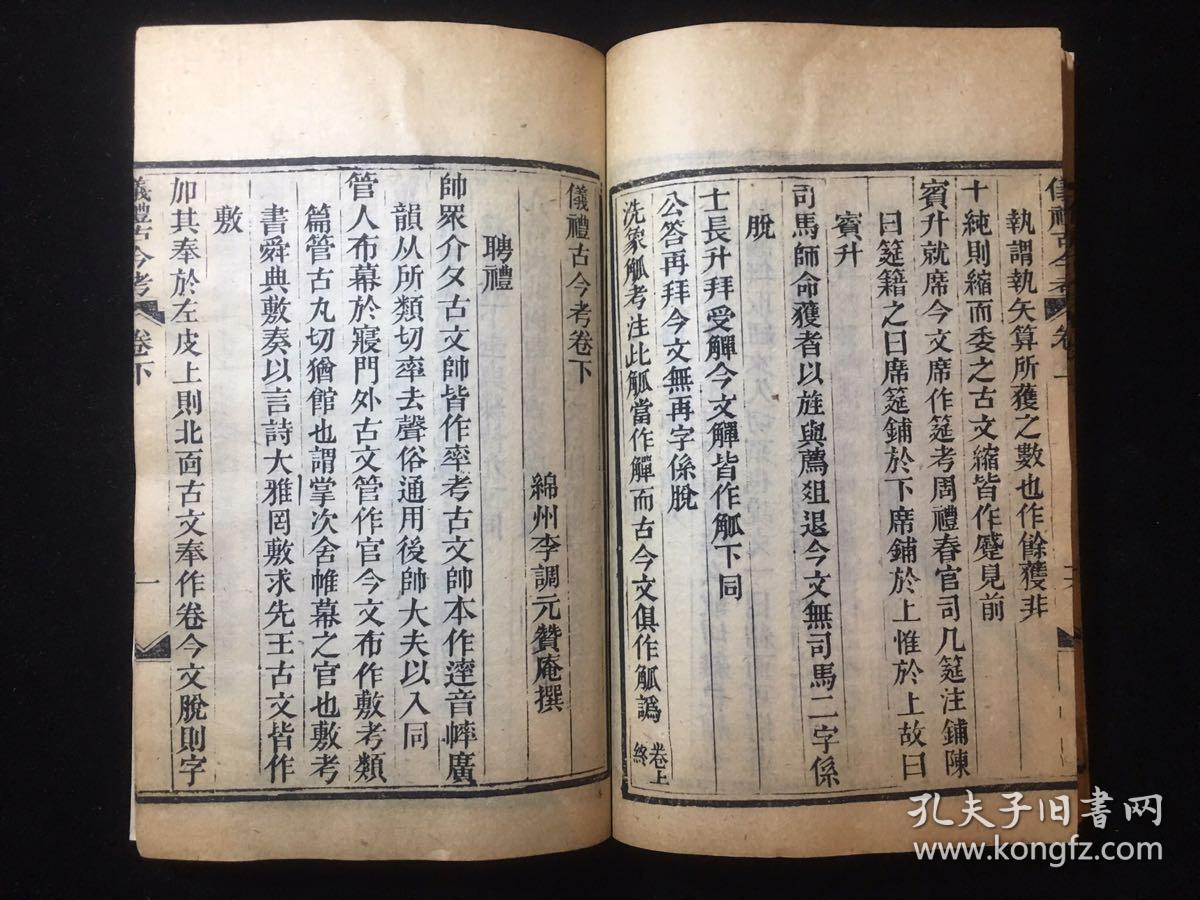 儀禮古今考 卷
執謂執矢算所獲之數也作餘獲非
十純則縮而委之古文縮皆作蹙見前
賓升就席今文席作筵考周禮春官司几筵注鋪陳
曰筵籍之曰席筵鋪於下席鋪於上惟於上故曰
賓升
司馬師命獲者以旌與薦俎退今文無司馬二字係
脫
士長升拜受觶今文觶皆作觚下同
公答再拜今文無再字係脫
洗象觚考注此觚當作觶而古今文俱作觚譌
卷上終
儀禮古今考卷下
綿州李調元贊庵撰
聘禮
帥眾介夕古文帥皆作率考古文帥本作䢦音蟀廣
韻从所類切率去聲俗通用後帥大夫以入同
管人布幕於寢門外古文管作官今文布作敷考類
篇管古丸切猶館也謂掌次舍帷幕之官也敷考
書舜典敷奏以言詩大雅罔敷求先王古文皆作
敷
加其奉於左皮上則北面古文奉作卷今文脫則字
儀禮古今考 卷下 一
孔夫子旧書网
www.kongfz.com